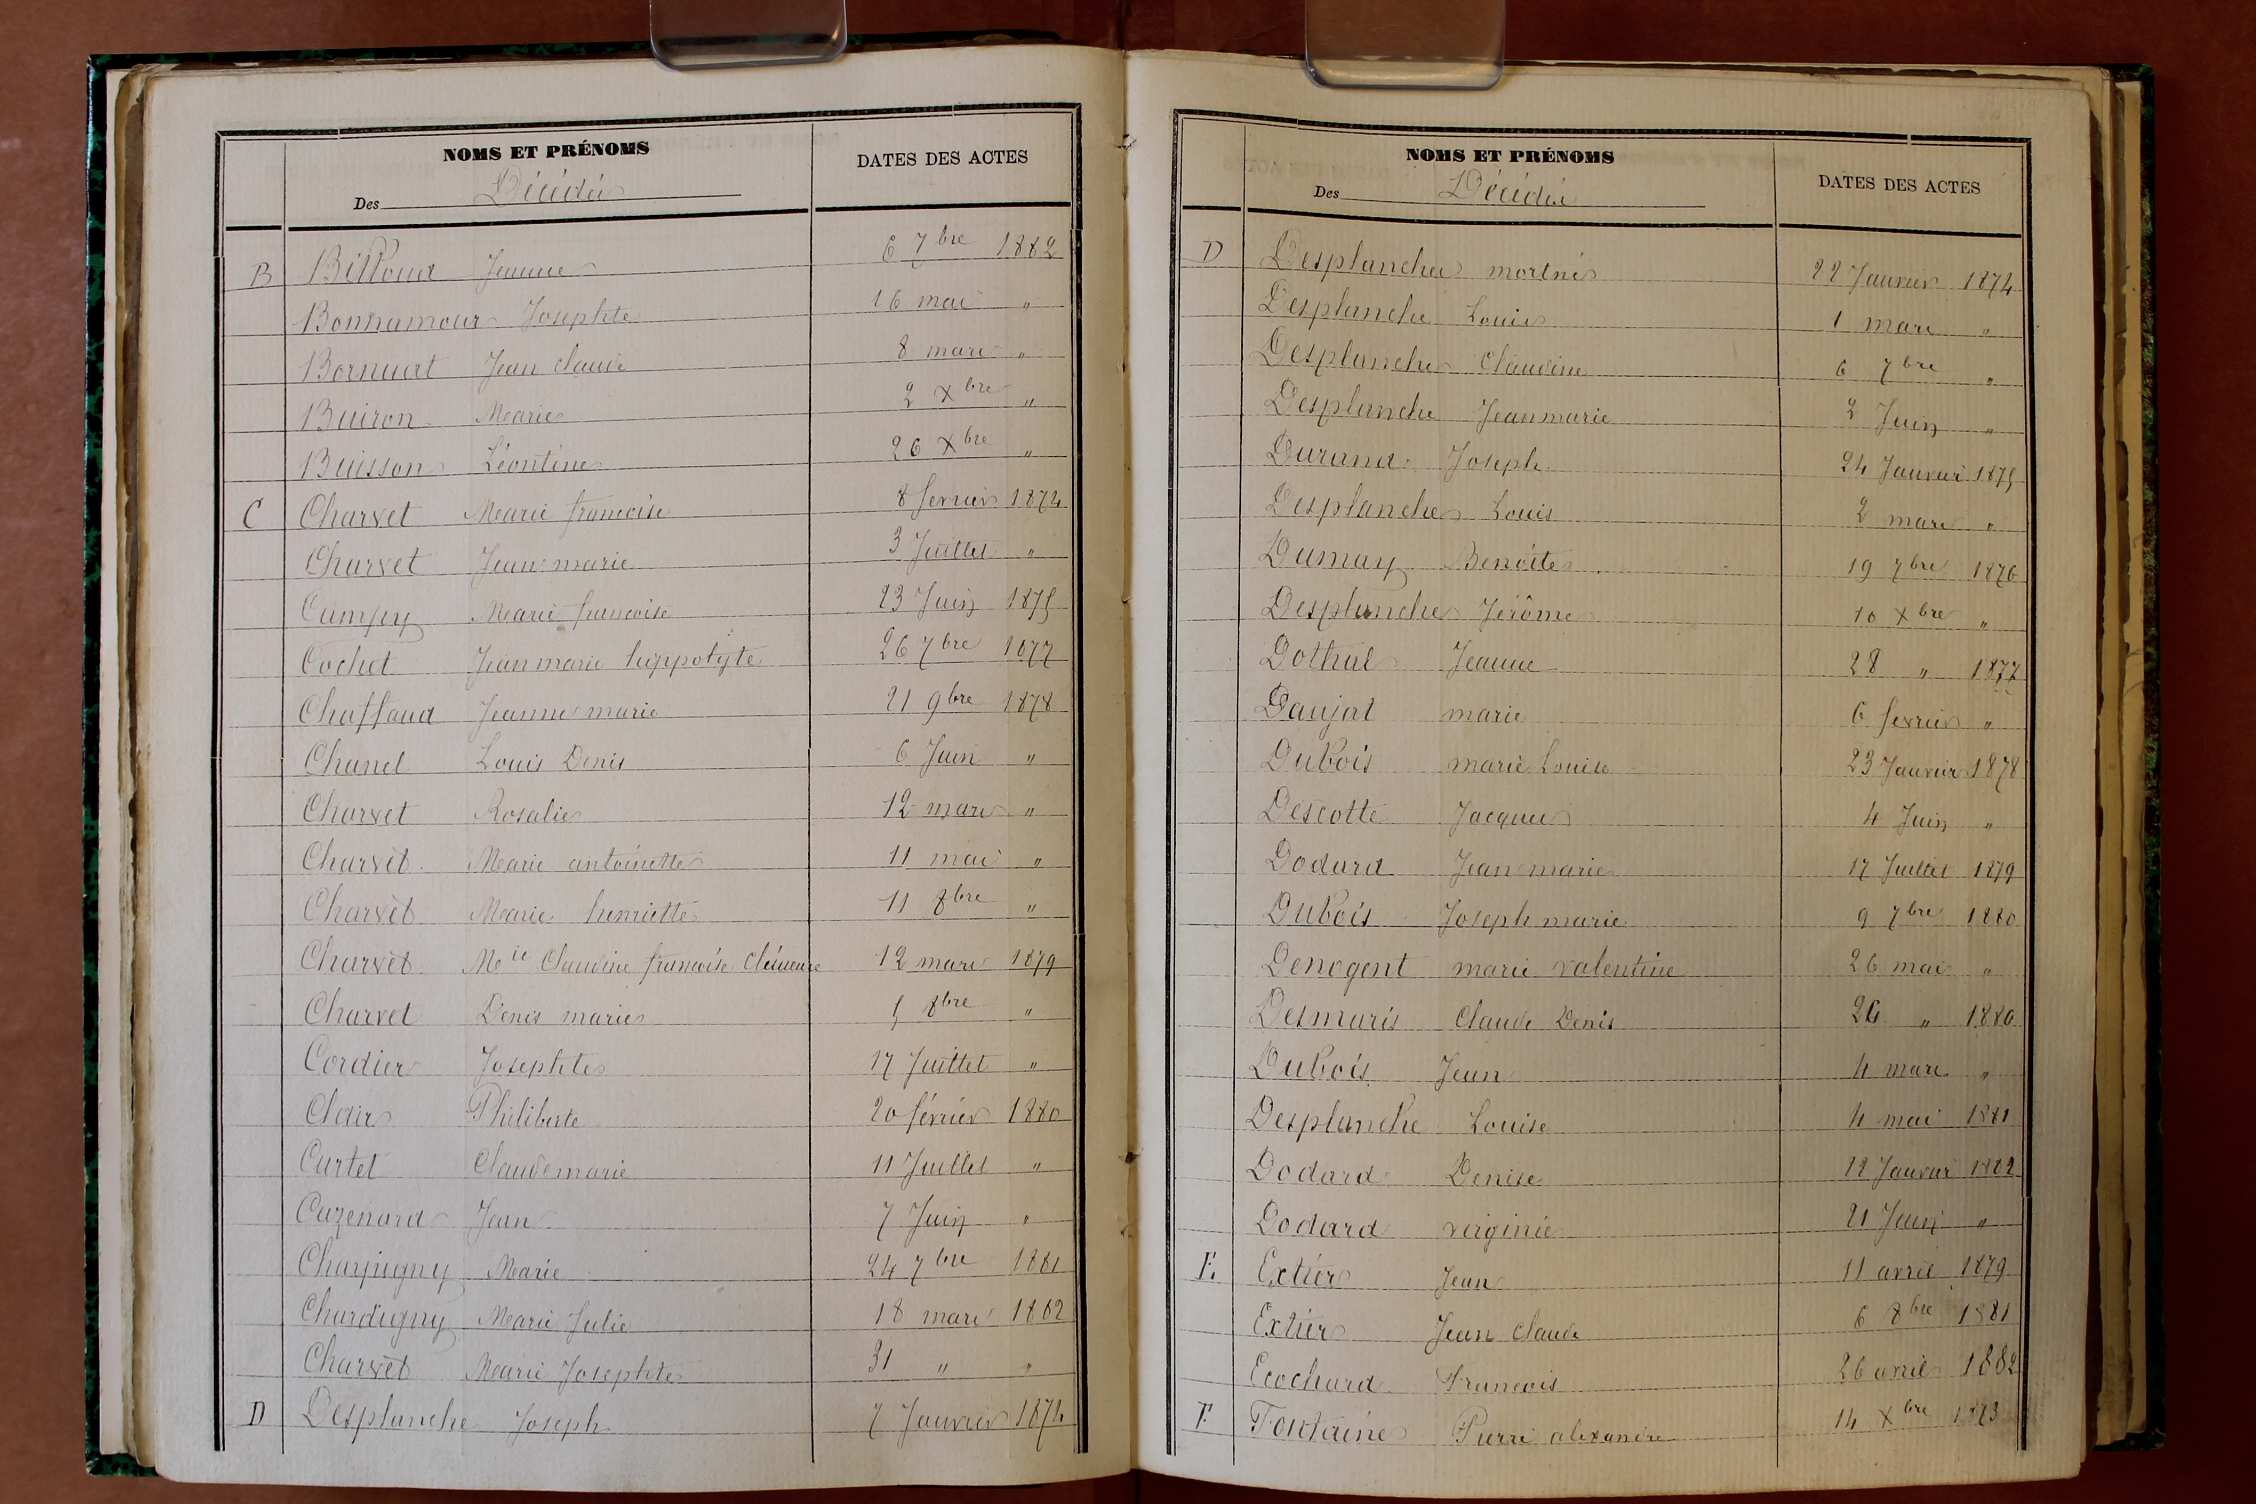 NOMS ET PRÉNOMS
DATES DES ACTES
Des Décédés
B Billoud Jeanne 6 7bre 1882
Bonnamour Josephte 16 mai "
Bornuat Jean claude 8 mars "
Buiron Marie 2 Xbre "
Buisson Léontine 26 Xbre "
C Charvet Marie francoise 8 fevrier 1874
Charvet Jean marie 3 Juillet "
Cumpy Marie francoise 23 Juin 1875
Cochet Jean marie hyppolyte 26 7bre 1877
Chaffaud Jeanne marie 21 9bre 1878
Chanel Louis Denis 6 Juin "
Charvet Rosalie 12 mars "
Charvet Marie antoinette 11 mai "
Charvet Marie henriette 11 8bre "
Charvet Mie Claudine francoise Clémence 12 mars 1879
Charvet Denis marie 5 8bre "
Cordier Josephte 17 Juillet "
Clair Philiberte 20 février 1880
Curtet Claude marie 11 Juillet "
Cazenard Jean 7 Juin "
Charpigny Marie 24 7bre 1881
Chardigny Marie Julie 18 mars 1882
Charvet Marie Josephte 31 " "
D Desplanche Joseph 7 Janvier 1874
NOMS ET PRÉNOMS
DATES DES ACTES
Des Décédés
D Desplanches mortnés 22 Janvier 1874
Desplanche Louis 1 mars "
Desplanche Claudine 6 7bre "
Desplanche Jean marie 2 Juin "
Durand Joseph 24 Janvier 1875
Desplanche Louis 2 mars "
Dumay Benoite 19 7bre 1876
Desplanche Jérôme 10 Xbre "
Dothal Jeanne 28 " 1877
Daujat marie 6 fevrier "
Dubois marie Louise 23 Janvier 1878
Descotte Jacques 4 Juin "
Dodard Jean marie 17 Juillet 1879
Dubois Joseph marie 9 7bre 1880
Denogent marie valentine 26 mai "
Desmaris Claude Denis " 1880
Dubois Jean 4 mars "
Desplanche Louise 4 mai 1881
Dodard Denise 12 Janvier 1882
Dodard virginie 21 Juin "
E. Extier Jean 11 avril 1879
Extier Jean Claude 6 8bre 1881
Ecochard Francois 26 avril 1882
F. Fontaine Pierre alexandre 14 Xbre 1873